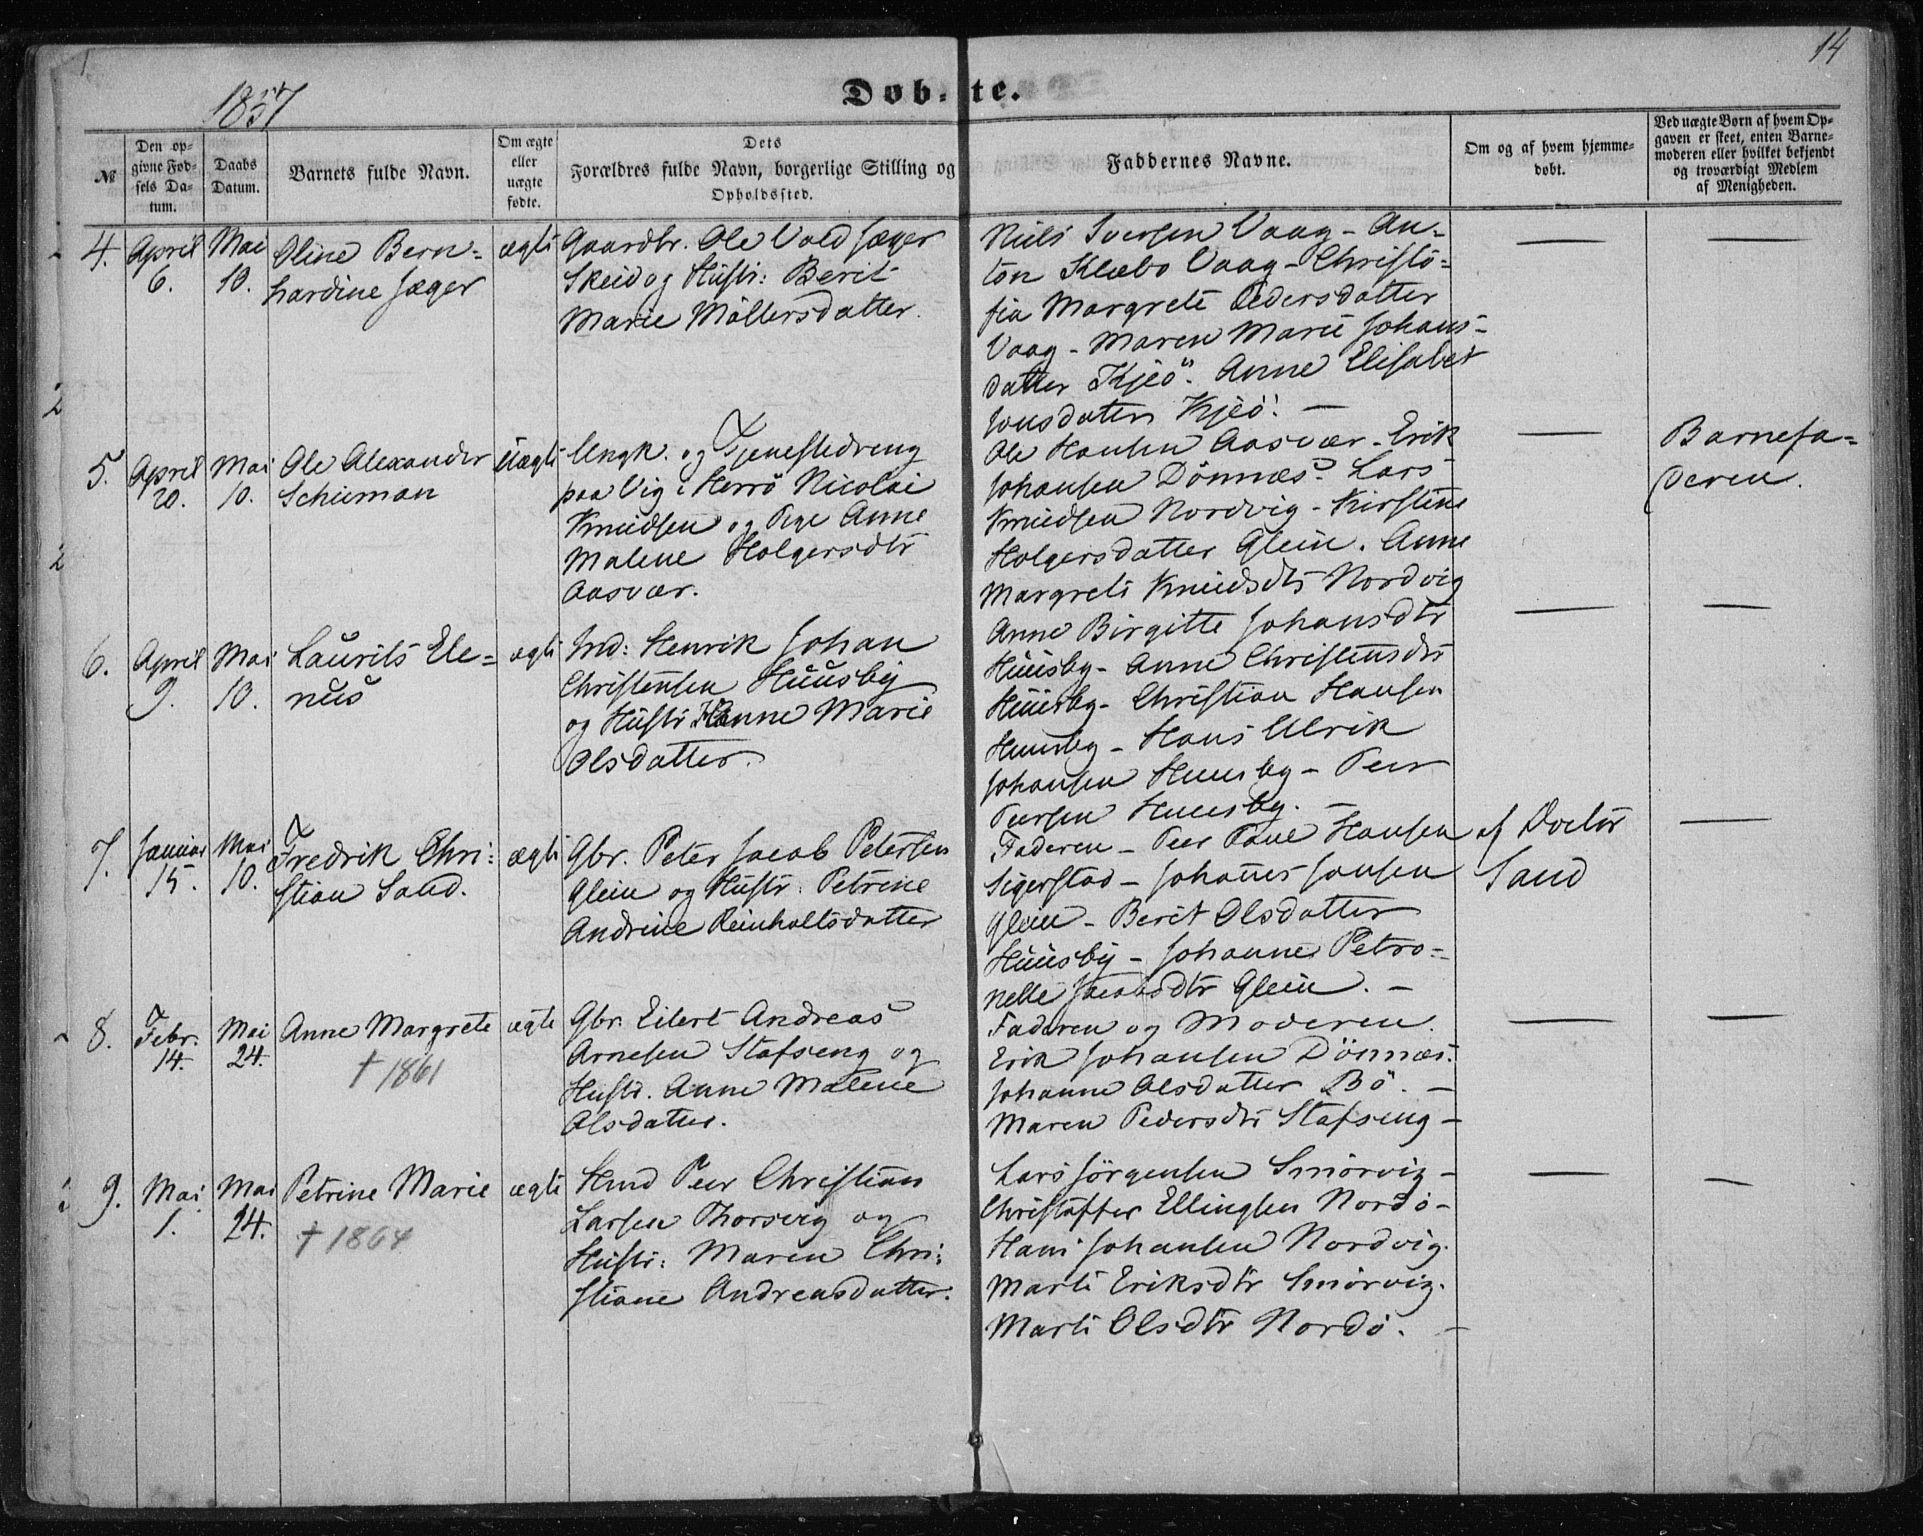 14
1857
Døb-te.
№
Den opgivne Fødsels Datum.
Daabs Datum.
Barnets fulde Navn.
Om ægte eller uægte fødte.
Dets Forældres fulde Navn, borgerlige Stilling og Opholdssted.
Faddernes Navne.
Om og af hvem hjemmedøbt.
Ved uægte Børn af hvem Opgaven er skeet, enten Barnemoderen eller hvilket bekjendt og troværdigt Medlem af Menigheden.
4.
April
6.
Mai
10.
Oline Bern=
hardine Jæger
ægte
Gaardbr. Ole Vold Jæger
Skeid og Hustr: Berit
Marie Möllersdatter.
Niels Iversen Vaag - An-
ton Klæbo Vaag - Christo=
fia Margrete Pedersdatter
Vaag - Maren Marie Johans-
datter Kjeö. Anne Elisabet
Jonsdatter Kjeö. -
5.
April
20.
Mai
10.
Ole Alexander
Schieman
Uægte
Ungk. og Tjenestedreng
paa Vig i Herrö Nicolai
Knudsen og Pige Anne
Malene Holgersdtr
Aasvær.
Ole Hansen Aasvær - Erik
Johansen Dönnæs. Lars
Knudsen Nordvig - Kirstine
Holgersdatter Glein. Anne
Margrete Knudsdtr Nordvig
Barnefa=
deren.
6.
April
9.
Mai
10.
Laurits Ele=
nus
ægte
Ind: Henrik Johan
Christensen Huusby
og Hustr Hanne Marie
Olsdatter.
Anne Birgitte Johansdtr
Huusby - Anne Christensdtr
Huusby - Christian Hansen
Huusby - Hans Ulrik
Johansen Huusby - Peer
Peersen Huusby. -
7.
Januar
15.
Mai
10.
Fredrik Chri=
stian Sand.
ægte
Gbr. Peter Jacob Petersen
Glein og Hustr: Petrine
Andrine Reinholtsdatter
Faderen - Peer Paul Hansen
Sigerstad - Johannes Jonsen
Glein - Berit Olsdatter
Huusby - Johanne Petro=
nelle Jacobsdtr Glein. -
af Doctor
Sand
8.
Febr.
14.
Mai
24.
Anne Margrete
† 1861
ægte
Gbr. Eilert Andreas
Arnesen Stafseng og
Hustr. Anne Malene
Olsdatter.
Faderen og Moderen.
Erik Johansen Dönnæs.
Johanne Olsdatter Bö. -
Maren Pedersdtr Stafseng -
9.
Mai
1.
Mai
24.
Petrine Marie
† 1864
ægte
Hmd Peer Christian
Larsen Thorsvig og
Hustr: Maren Chri=
stiane Andreasdatter.
Lars Jörgensen Smörvig -
Christoffer Ellingsen Nordö -
Hans Johansen Nordvig.
Marte Eriksdtr Smörvig.
Marte Olsdtr Nordö. -